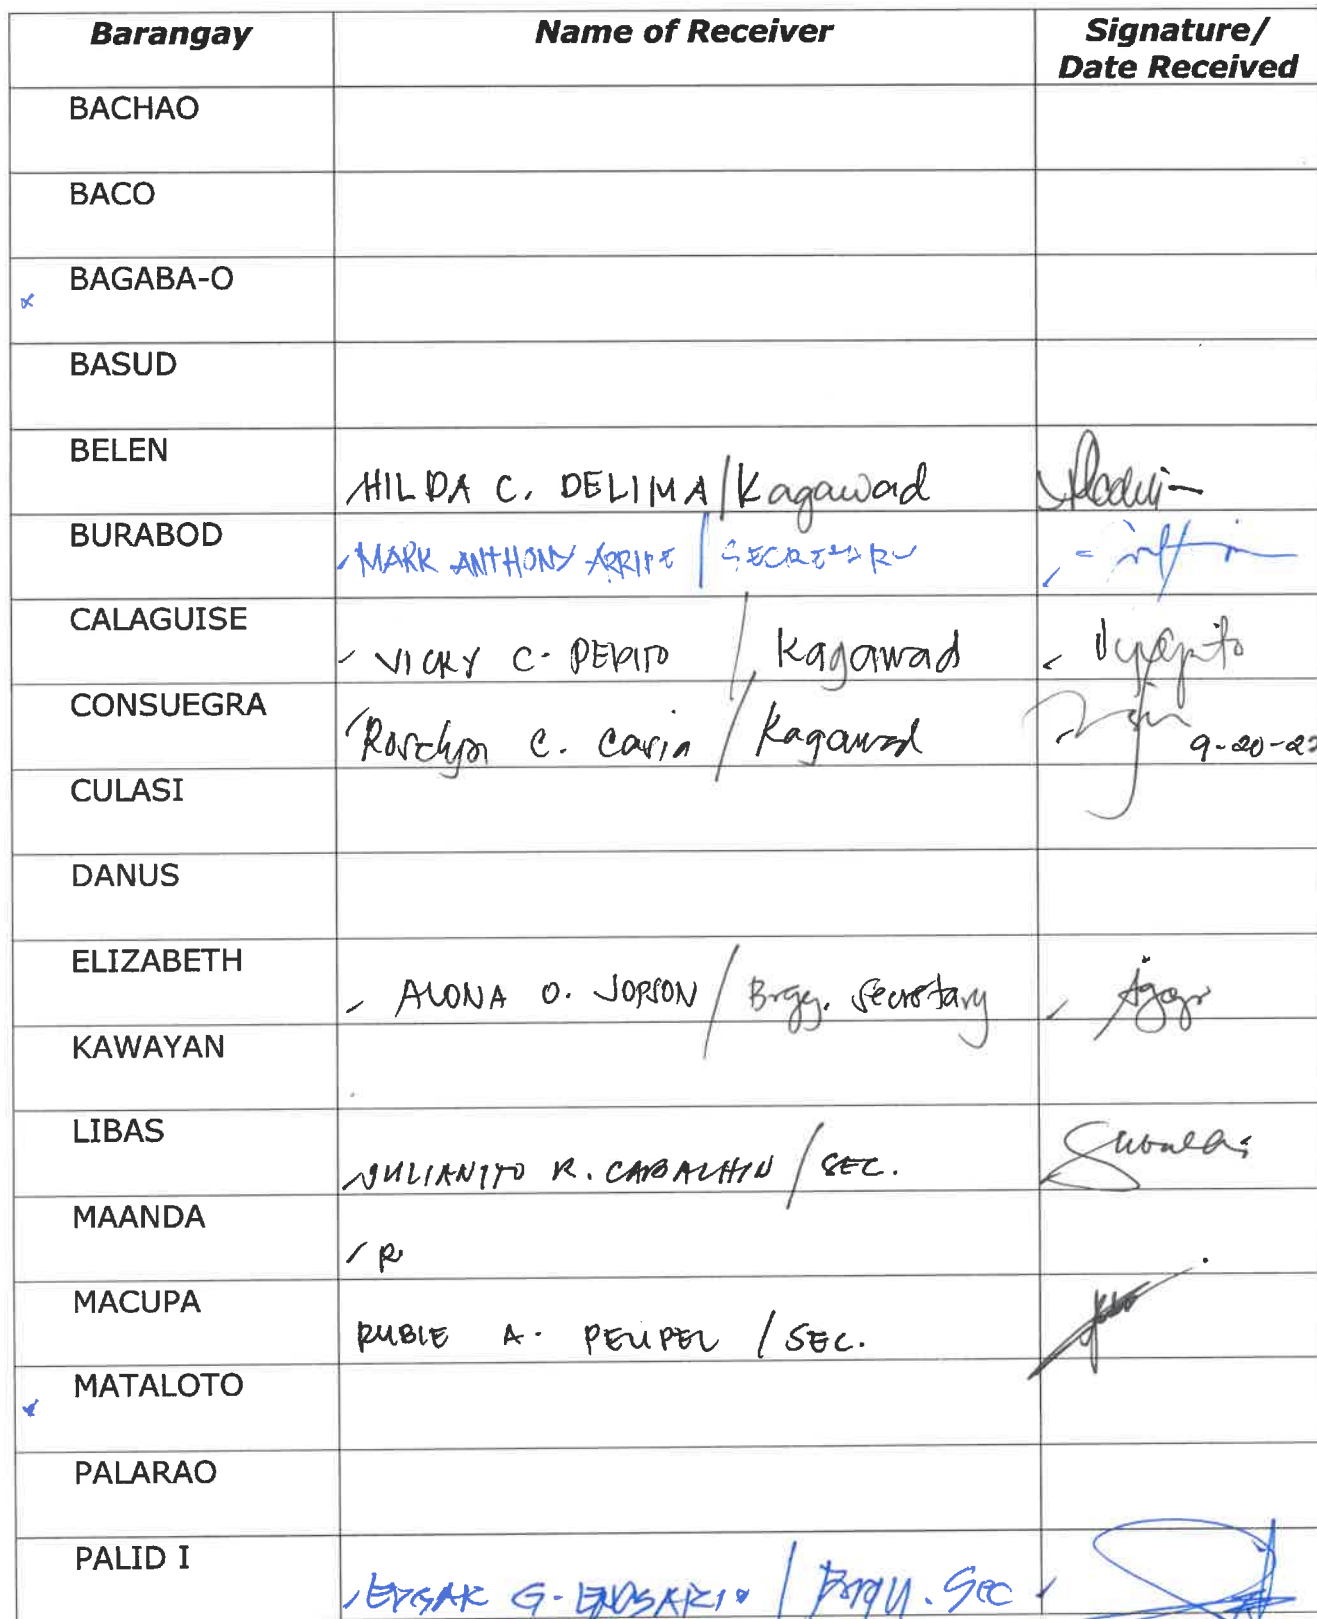 Barangay Name of Receiver Signature/
Date Received
BACHAO
BACO
BAGABA-O
BASUD
BELEN
HILDA C. DELIMA / Kagawad
BURABOD
MARK ANTHONY / SECRETARY
CALAGUISE
VICKY C. PEPITO / Kagawad
CONSUEGRA
C. / Kagawad 9-20-22
CULASI
DANUS
ELIZABETH
ALONA O. JOPSON / Brgy. Secretary
KAWAYAN
LIBAS
JULIANITO R. CABALHIN / SEC.
MAANDA
R
MACUPA
RUBIE A. / SEC.
MATALOTO
PALARAO
PALID I
EDGAR G. / Brgy. Sec